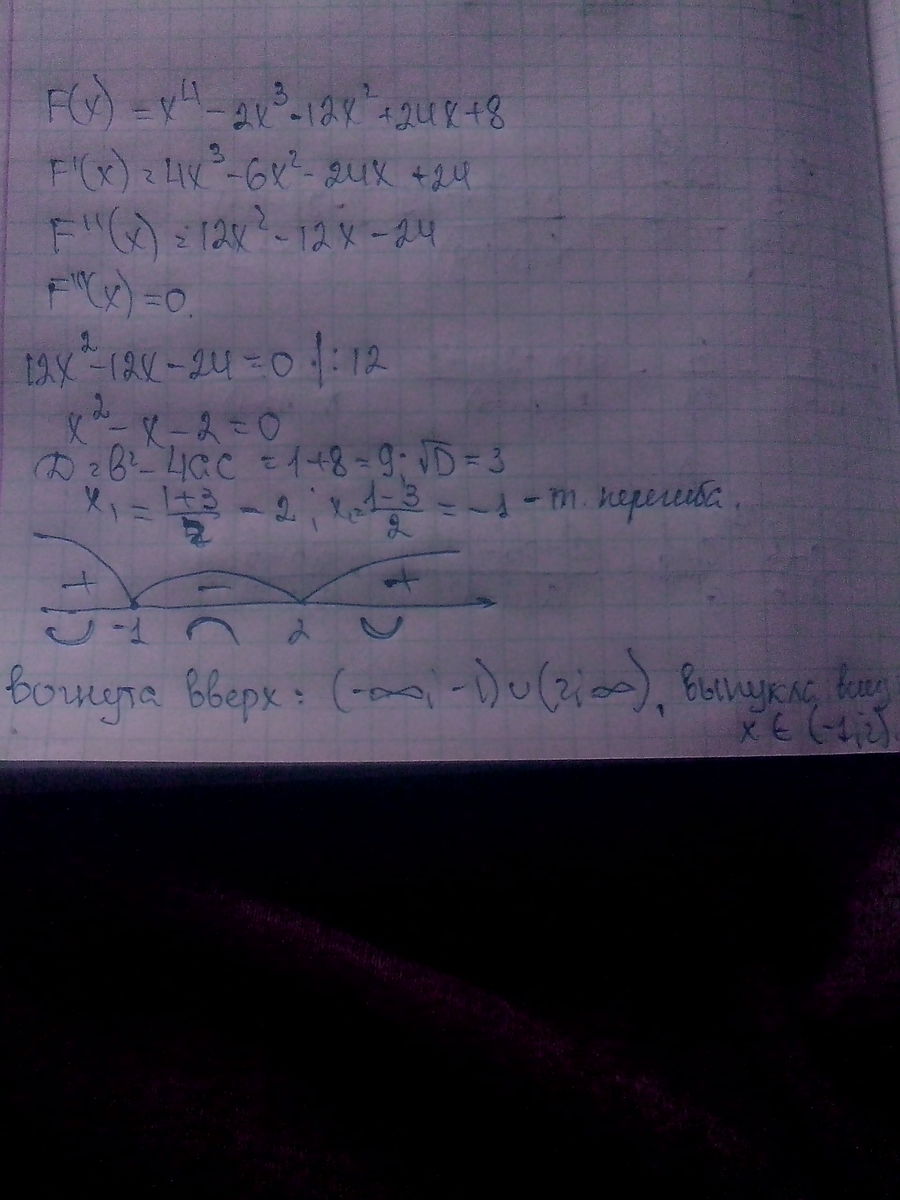 F(x) = x⁴ - 2x³ - 12x² + 24x + 8
F'(x) = 4x³ - 6x² - 24x + 24
F''(x) = 12x² - 12x - 24
F''(x) = 0.
12x² - 12x - 24 = 0 |: 12
x² - x - 2 = 0
D = b² - 4ac = 1+8 = 9; √D = 3
x₁ = (1+3)/2 - 2; x₂ = (1-3)/2 = -1 - т. перегиба.
+ - +
-1 2
вогнута вверх: (-∞; -1) ∪ (2; ∞), выпукла
x ∈ (-1; 2).